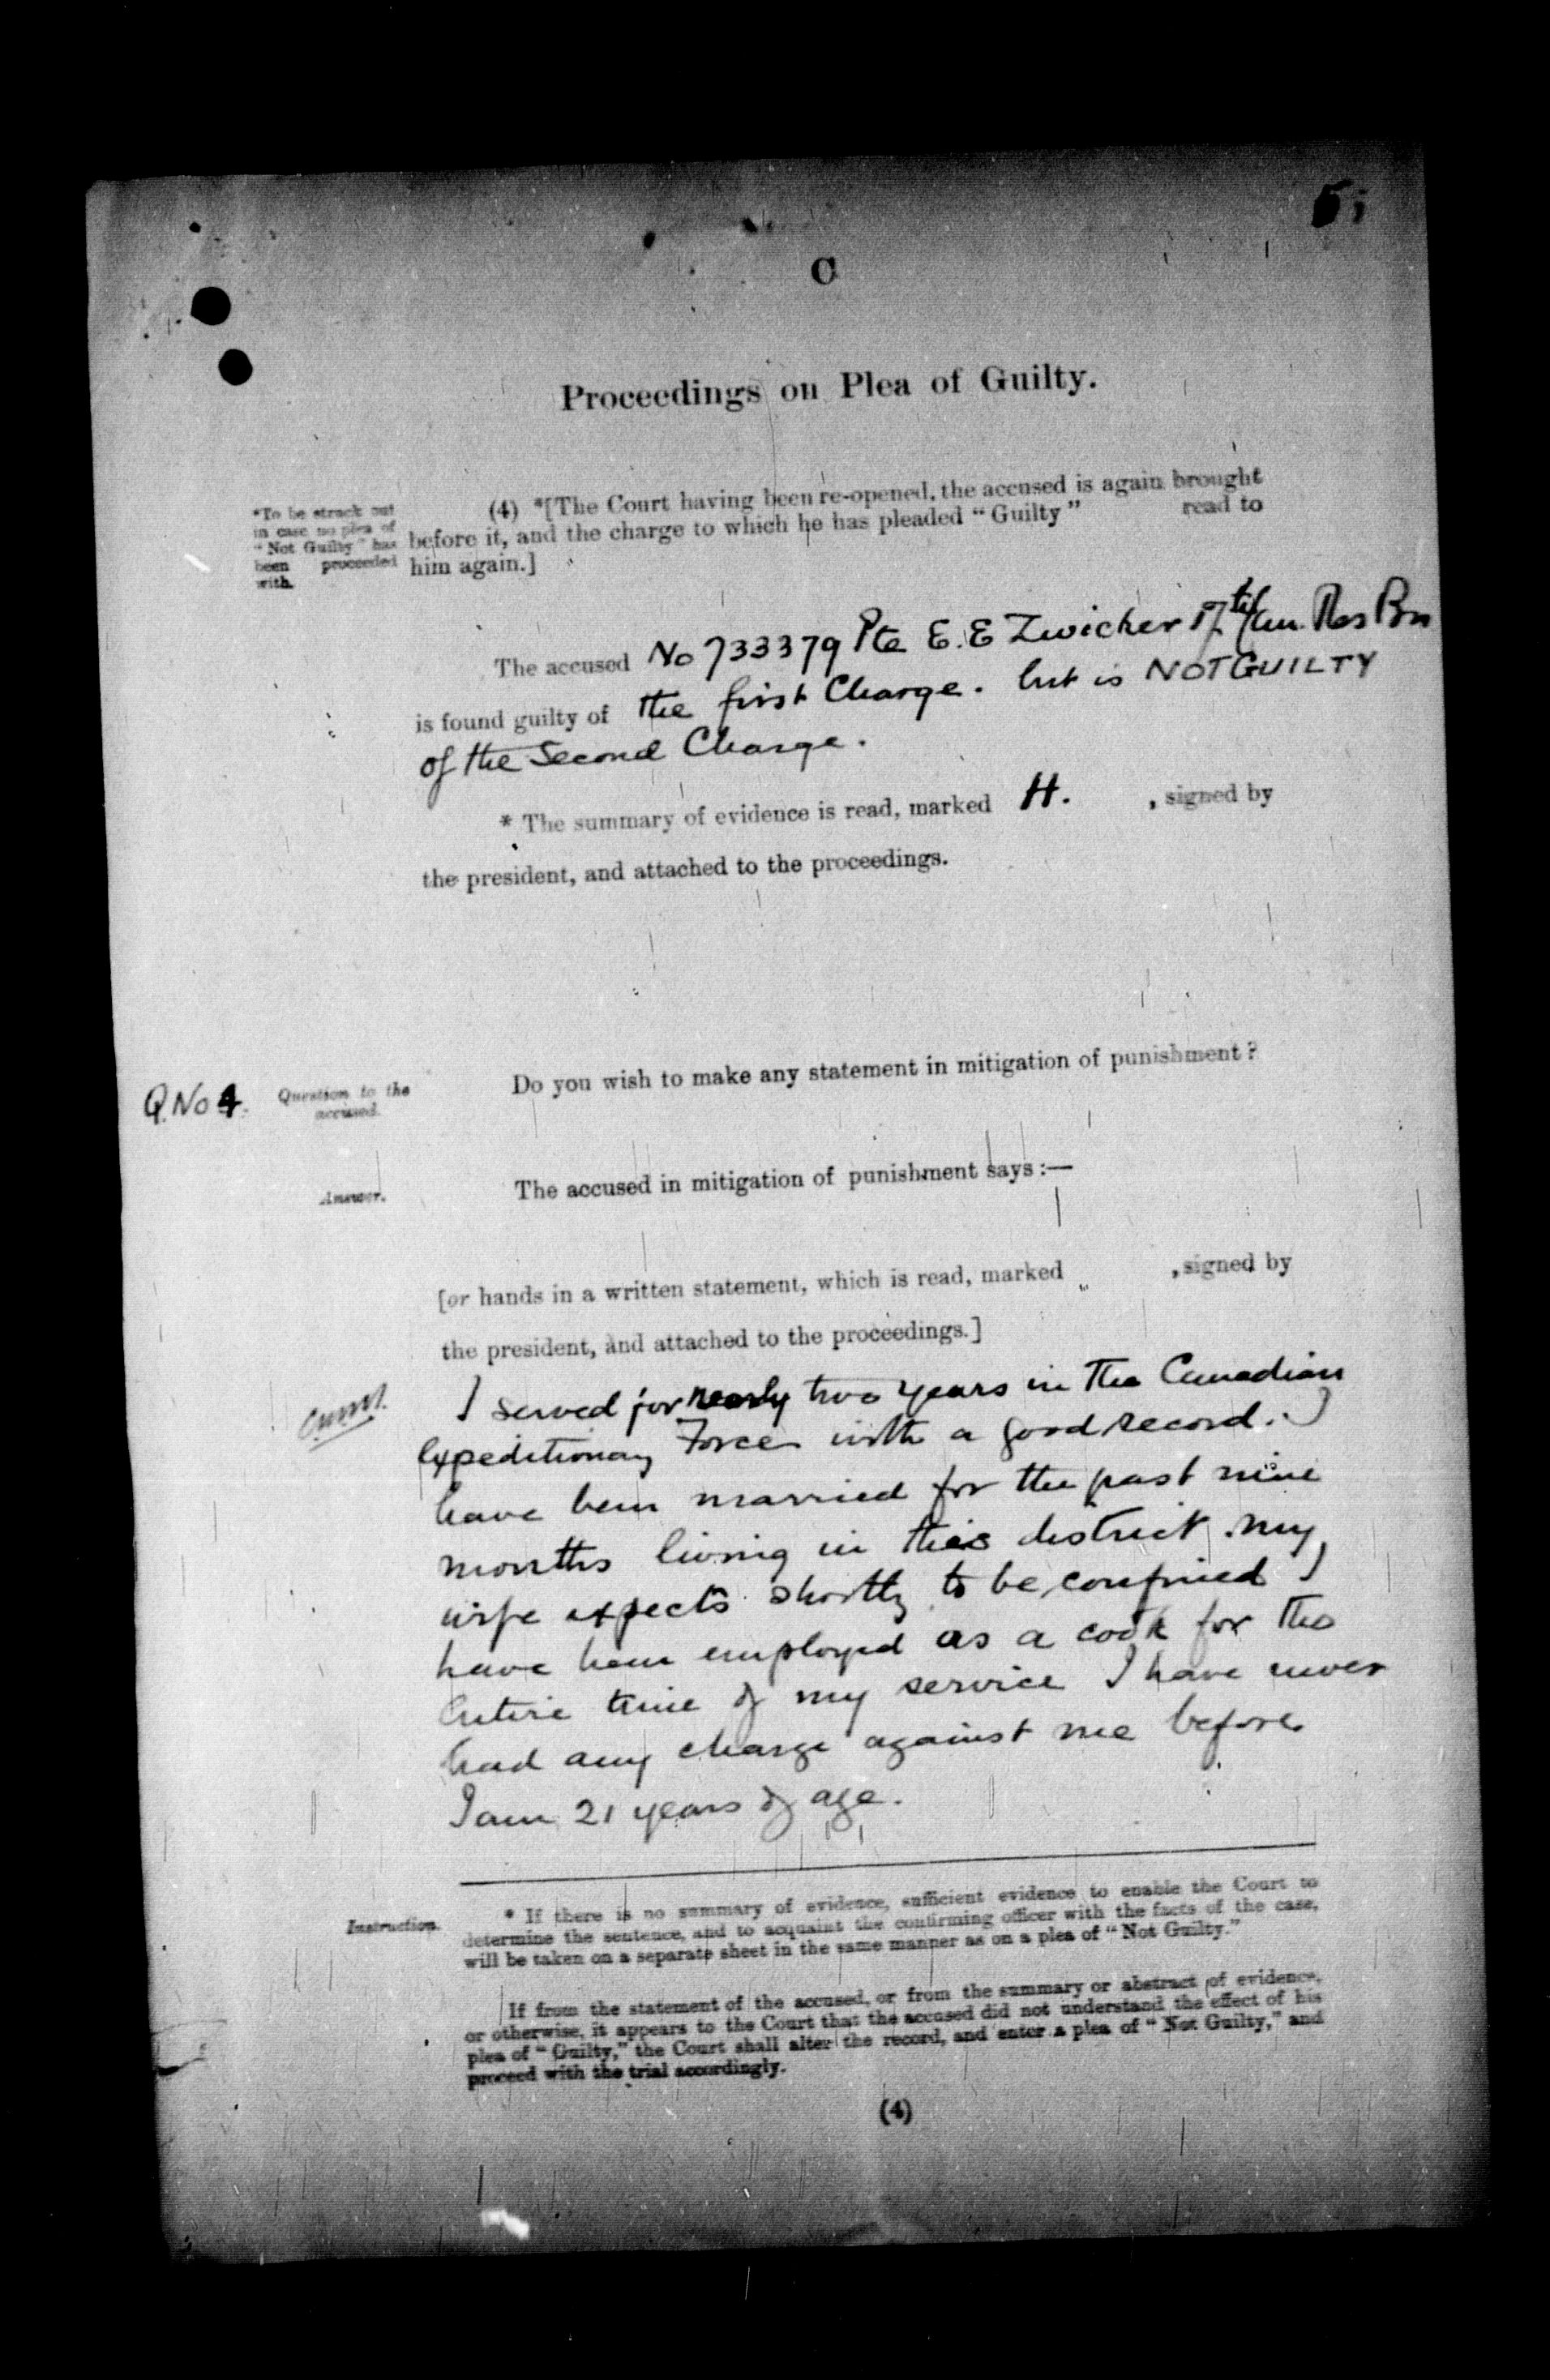 C
Proceedings on Plea of Guilty.
*To be struck out
in case no plea of
"Not Guilty" has
been proceeded
with.
(4) *[The Court having been re-opened, the accused is again brought
before it, and the charge to which he has pleaded "Guilty" read to
him again.]
The accused No 733379 Pte E.E Zwicker 17th Can. Res Bn
is found guilty of the first Charge. but is NOT GUILTY
of the Second Charge.
* The summary of evidence is read, marked H. , signed by
the president, and attached to the proceedings.
Q.No 4.
Question to the
accused.
Do you wish to make any statement in mitigation of punishment?
Answer.
The accused in mitigation of punishment says:—
[or hands in a written statement, which is read, marked , signed by
the president, and attached to the proceedings.]
I served for nearly two years in the Canadian
Expeditionary Forces with a good record. I
have been married for the past nine
months living in this district. my
wife expects shortly to be confined I
have been employed as a cook for the
entire time of my service I have never
had any charge against me before
I am 21 years of age.
Instruction.
* If there is no summary of evidence, sufficient evidence to enable the Court to
determine the sentence, and to acquaint the confirming officer with the facts of the case,
will be taken on a separate sheet in the same manner as on a plea of "Not Guilty."
If from the statement of the accused, or from the summary or abstract of evidence,
or otherwise, it appears to the Court that the accused did not understand the effect of his
plea of "Guilty," the Court shall alter the record, and enter a plea of "Not Guilty," and
proceed with the trial accordingly.
(4)